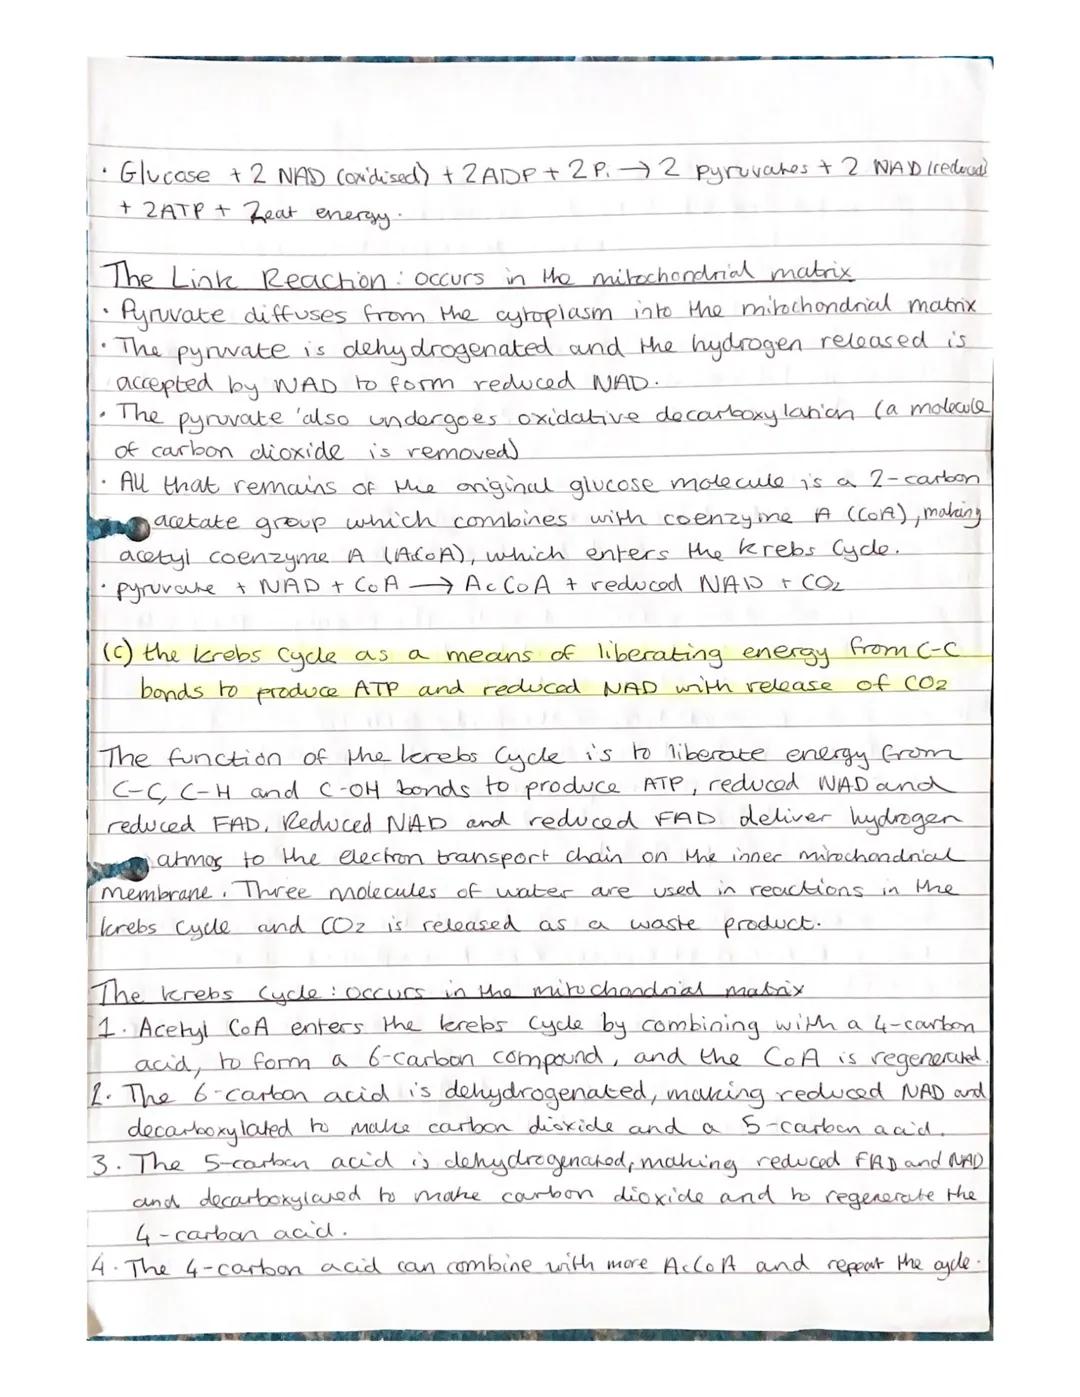 · Glucose + 2 NAD (oxidised) + 2ADP + 2Pi → 2 pyruvates + 2 NAD (reduced)
+ 2ATP + Heat energy.
The Link Reaction: occurs in the mitochondrial matrix
· Pyruvate diffuses from the cytoplasm into the mitochondrial matrix
· The pyruvate is dehydrogenated and the hydrogen released is
accepted by NAD to form reduced NAD.
· The pyruvate also undergoes oxidative decarboxylation (a molecule
of carbon dioxide is removed)
· All that remains of the original glucose molecule is a 2-carbon
acetate group which combines with coenzyme A (CoA), making
acetyl coenzyme A (AcoA), which enters the Krebs Cycle.
· pyruvate + NAD + CoA → AcCoA + reduced NAD + CO2
(c) the Krebs Cycle as a means of liberating energy from C-C
bonds to produce ATP and reduced NAD with release of CO2
The function of the krebs Cycle is to liberate energy from
C-C, C-H and C-OH bonds to produce ATP, reduced NAD and
reduced FAD. Reduced NAD and reduced FAD deliver hydrogen
atmos to the electron transport chain on the inner mitochondrial
membrane. Three molecules of water are used in reactions in the
krebs Cycle and CO2 is released as a waste product.
The krebs Cycle: occurs in the mitochondrial matrix
1. Acetyl CoA enters the krebs Cycle by combining with a 4-carbon
acid, to form a 6-carbon compound, and the CoA is regenerated.
2. The 6-carbon acid is dehydrogenated, making reduced NAD and
decarboxylated to make carbon dioxide and a 5-carbon acid.
3. The 5-carbon acid is dehydrogenated, making reduced FAD and NAD
and decarboxylated to make carbon dioxide and to regenerate the
4-carbon acid.
4. The 4-carbon acid can combine with more AcCoA and repeat the cycle.